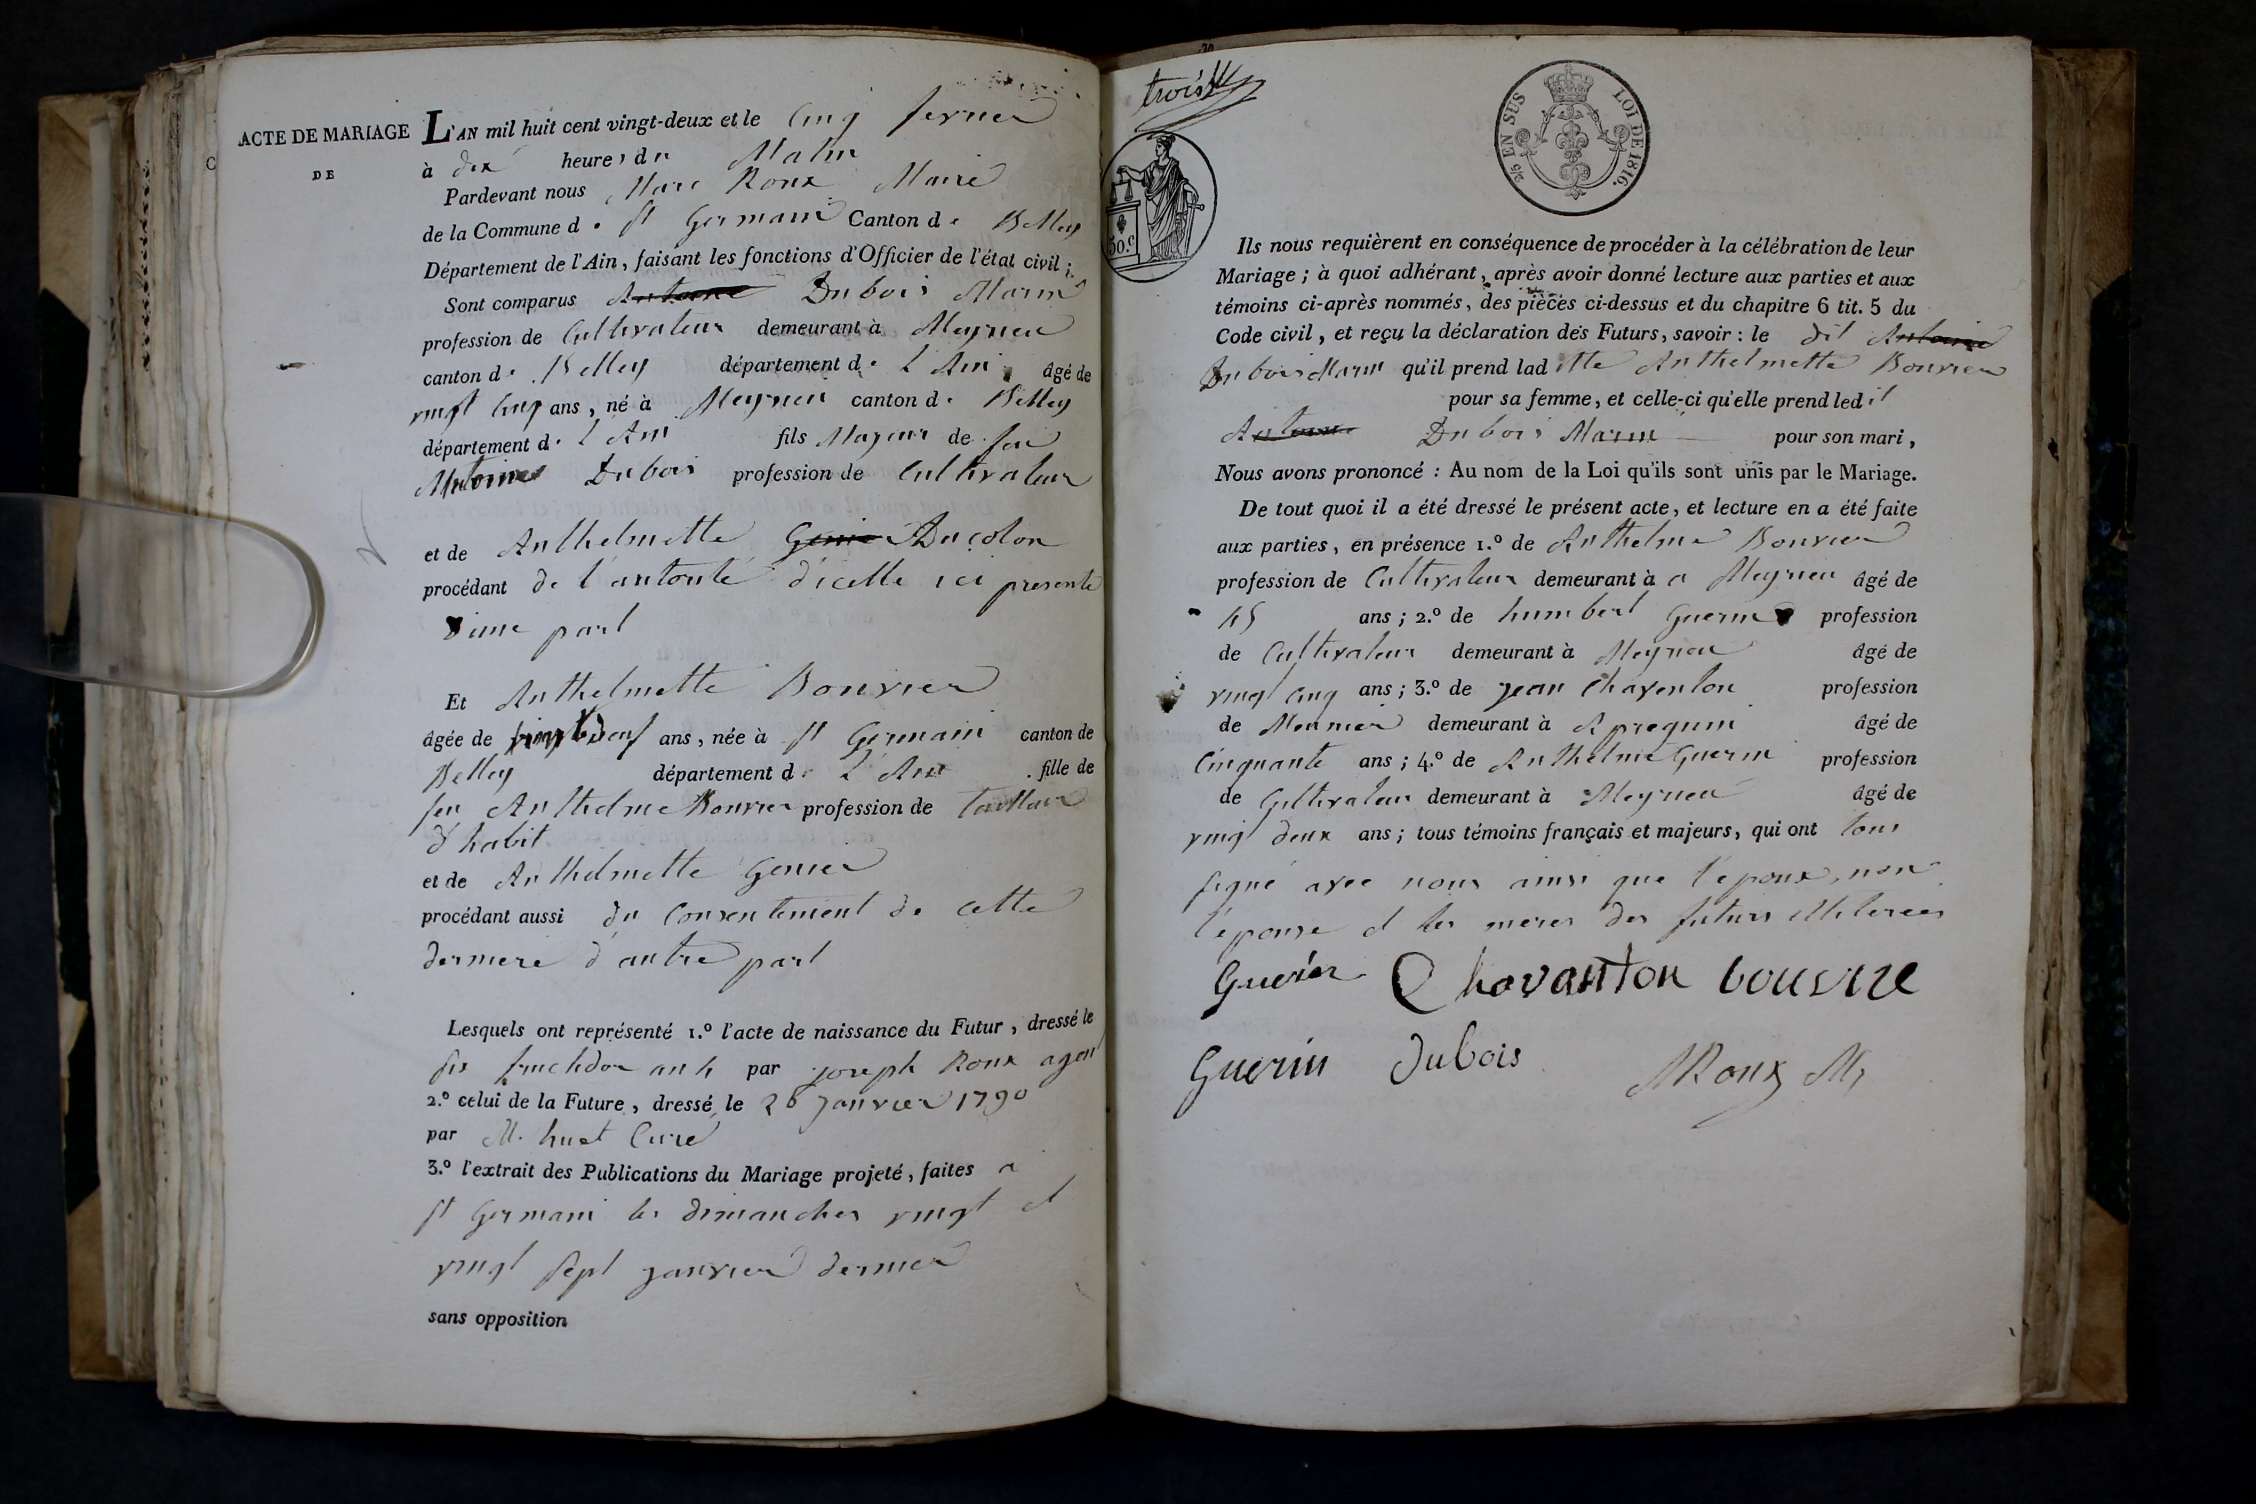 ACTE DE MARIAGE
DE
L'AN mil huit cent vingt-deux et le Cinq fevrier
à dix heures du Matin
Pardevant nous Marc Roux Maire
de la Commune de St Germain Canton de Belley
Département de l'Ain, faisant les fonctions d'Officier de l'état civil ;
Sont comparus Antoine Dubois Marin
profession de Cultivateur demeurant à Meyrieu
canton de Belley département de L'Ain âgé de
vingt Cinq ans, né à Meyrieu canton de Belley
département de L'Ain fils Majeur de feu
Antoine Dubois profession de Cultivateur
et de Anthelmette Genie Ducolon
procédant de l'autorité d'icelle ici presente
d'une part
Et Anthelmette Bouvier
âgée de ans, née à St Germain canton de
Belley département de L'Ain fille de
feu Anthelme Bouvier profession de tailleur
d'habit
et de Anthelmette Genier
procédant aussi du Consentement de cette
derniere d'autre part
Lesquels ont représenté 1.º l'acte de naissance du Futur, dressé le
six fructidor an 4 par joseph Roux agent
2.º celui de la Future, dressé le 26 janvier 1790
par M. huet Curé
3.º l'extrait des Publications du Mariage projeté, faites a
St Germain les dimanches vingt et
vingt sept janvier dernier
sans opposition
trois
2/5 EN SUS LOI DE 1816.
50.c
Ils nous requièrent en conséquence de procéder à la célébration de leur
Mariage ; à quoi adhérant, après avoir donné lecture aux parties et aux
témoins ci-après nommés, des pièces ci-dessus et du chapitre 6 tit. 5 du
Code civil, et reçu la déclaration des Futurs, savoir : le dit Antoine
Dubois Marin qu'il prend ladite Anthelmette Bouvier
pour sa femme, et celle-ci qu'elle prend ledit
Antoine Dubois Marin pour son mari,
Nous avons prononcé : Au nom de la Loi qu'ils sont unis par le Mariage.
De tout quoi il a été dressé le présent acte, et lecture en a été faite
aux parties, en présence 1.º de Anthelme Bouvier
profession de Cultivateur demeurant à a Meyrieu âgé de
45 ans ; 2.º de humbert Guerin profession
de Cultivateur demeurant à Meyrieu âgé de
vingt Cinq ans ; 3.º de jean Chavanton profession
de Meunier demeurant à Apregnin âgé de
Cinquante ans ; 4.º de Anthelme Guerin profession
de Cultivateur demeurant à Meyrieu âgé de
vingt deux ans ; tous témoins français et majeurs, qui ont tous
signé avec nous ainsi que l'epoux, non
l'epouse et les meres des futurs illiterees
Guerin Chavanton bouvrie
Guerin Dubois MRoux M,